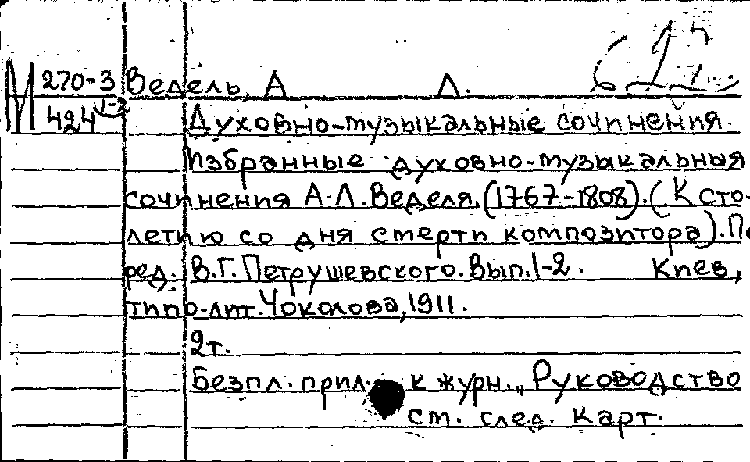 М 270-3 Ведель, А Л.
424 1-2
Духовно-музыкальные сочинения.
Избранные духовно-музыкальныя
сочинения А.Л.Веделя.(1767-1808).(К сто-
летию со дня смерти композитора).По
ред. В.Г.Петрушевского.Вып.1-2. Киев,
типо-лит.Чоколова,1911.
2т.
Безпл. прил. к журн. „Руководство
см. след. карт.